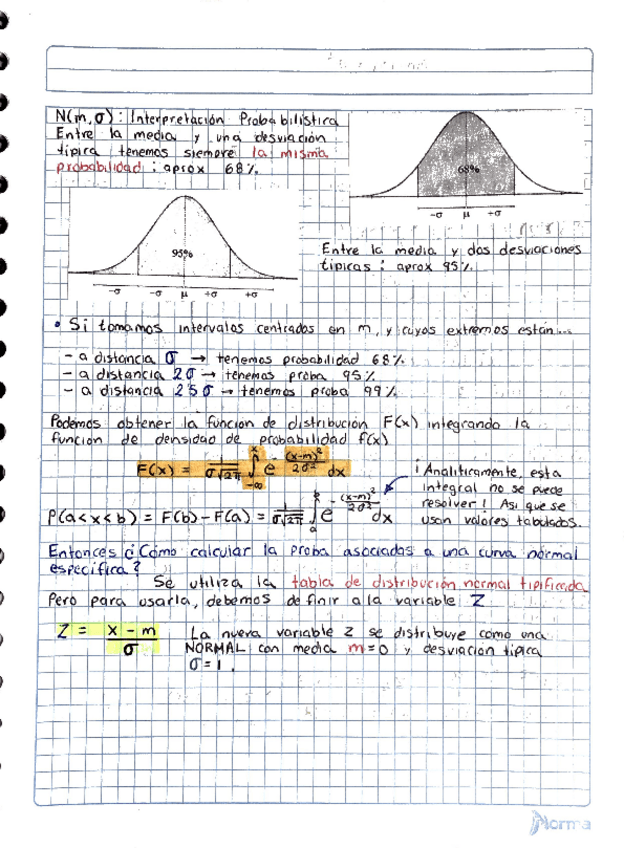 N(m,σ): Interpretación Probabilística
Entre la media y una desviación
típica tenemos siempre la misma
probabilidad: aprox 68%.
68%
-σ μ +σ
95%
-σ -σ μ +σ +σ
Entre la media y dos desviaciones
típicas: aprox 95%.
• Si tomamos intervalos centrados en m, y cuyos extremos están...
- a distancia σ → tenemos probabilidad 68%
- a distancia 2σ → tenemos proba 95%
- a distancia 2 5σ → tenemos proba 99%
Podemos obtener la función de distribución F(x) integrando la
función de densidad de probabilidad f(x)
F(x) = 1/σ√2π ∫_-∞^x e^-(x-m)²/2σ² dx
¡Analíticamente, esta
integral no se puede
resolver! Así que se
usan valores tabulados.
P(a<x<b) = F(b)-F(a) = 1/σ√2π ∫_a^b e^-(x-m)²/2σ² dx
Entonces ¿Cómo calcular la proba asociadas a una curva normal
específica?
Se utiliza la tabla de distribución normal tipificada
Pero para usarla, debemos definir a la variable Z
Z = x-m/σ
La nueva variable z se distribuye como una
NORMAL con media m=0 y desviación típica
σ=1.
Norma